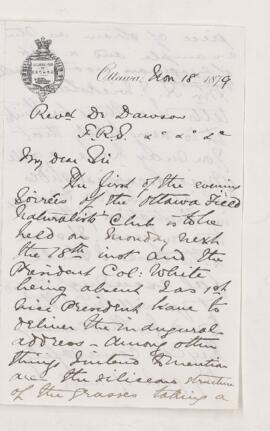 Ottawa, Nov 18 1879
Revd Dr Dawson
F.R.S. &c &c &c
My dear Sir
The first of the evening
Soirées of the Ottawa Field
Naturalists Club is to be
held on Monday next
the 28th inst and the
President Col: White
being absent I as 1st
Vice President have to
deliver the inaugural
address - Among other
things I intend to mention
are the siliceous structure
of the grasses taking a